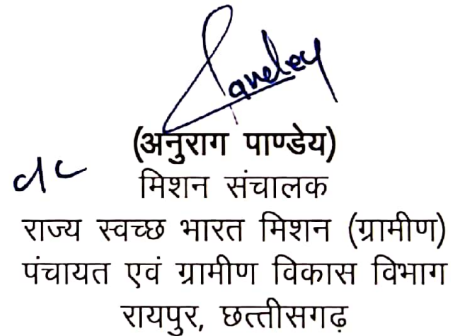 Pandey
(अनुराग पाण्डेय)
मिशन संचालक
राज्य स्वच्छ भारत मिशन (ग्रामीण)
पंचायत एवं ग्रामीण विकास विभाग
रायपुर, छत्तीसगढ़